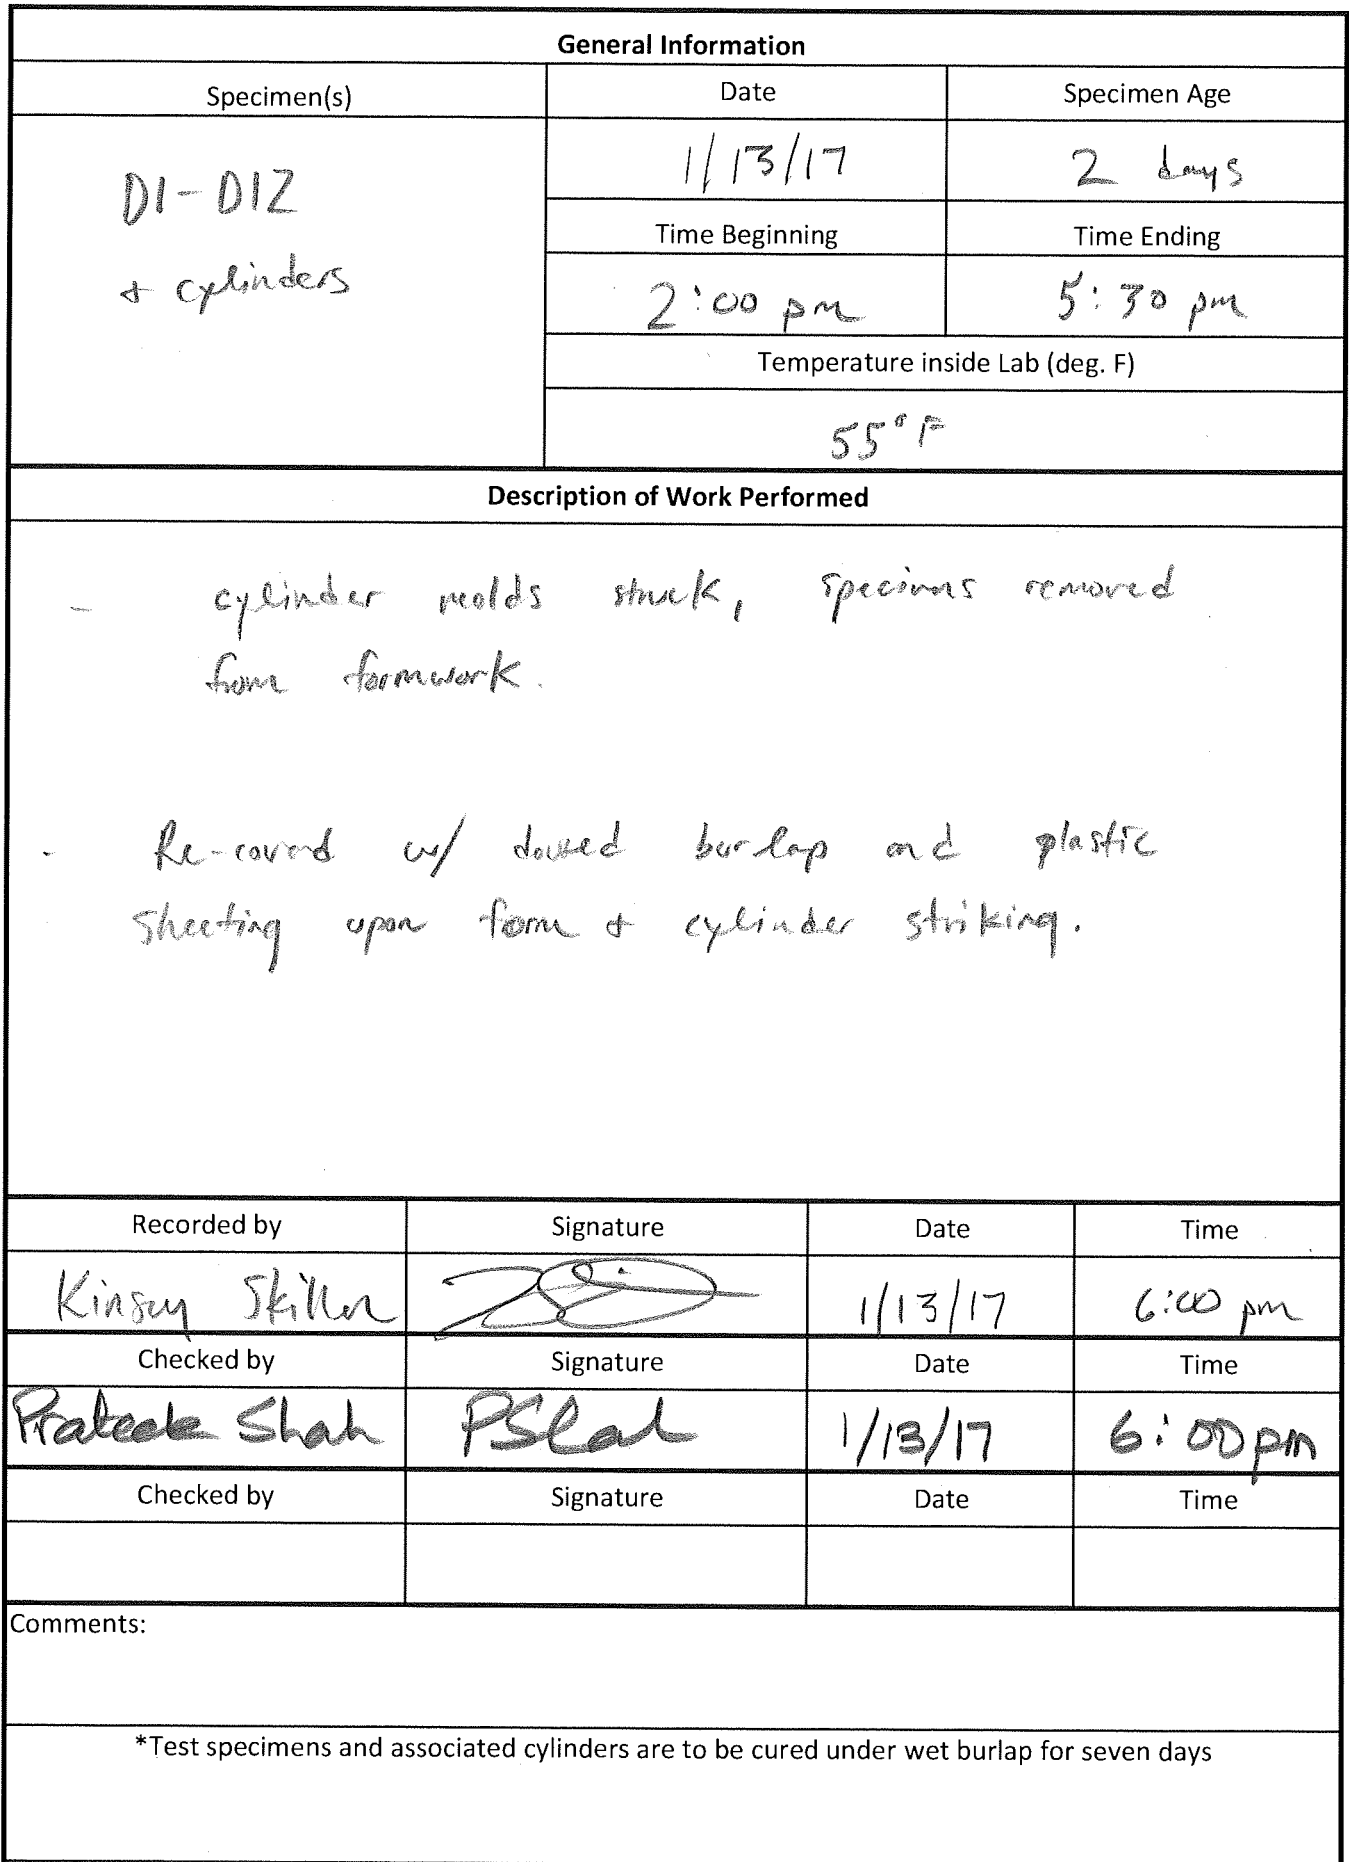 General Information
Specimen(s) Date Specimen Age
D1-D12
+ cylinders
1/13/17 2 days
Time Beginning Time Ending
2:00 pm 5:30 pm
Temperature inside Lab (deg. F)
55°F
Description of Work Performed
- cylinder molds struck, specimns removed
from formwork.
- Re-coverd w/ doused burlap and plastic
sheeting upon form + cylinder striking.
Recorded by Signature Date Time
Kinsey Skillen 1/13/17 6:00 pm
Checked by Signature Date Time
Prateek Shah PShah 1/13/17 6:00 pm
Checked by Signature Date Time
Comments:
*Test specimens and associated cylinders are to be cured under wet burlap for seven days